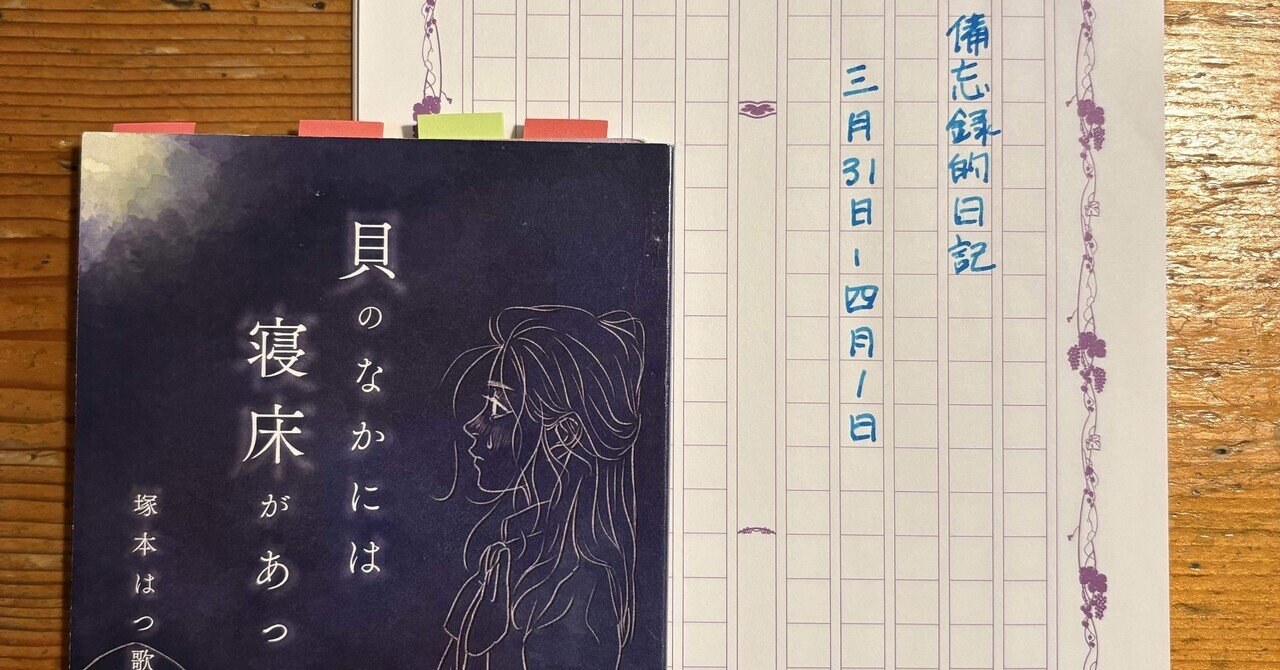 備忘録的日記
三月31日-四月1日
貝のなかには
寝床があっ
塚本はつ歌